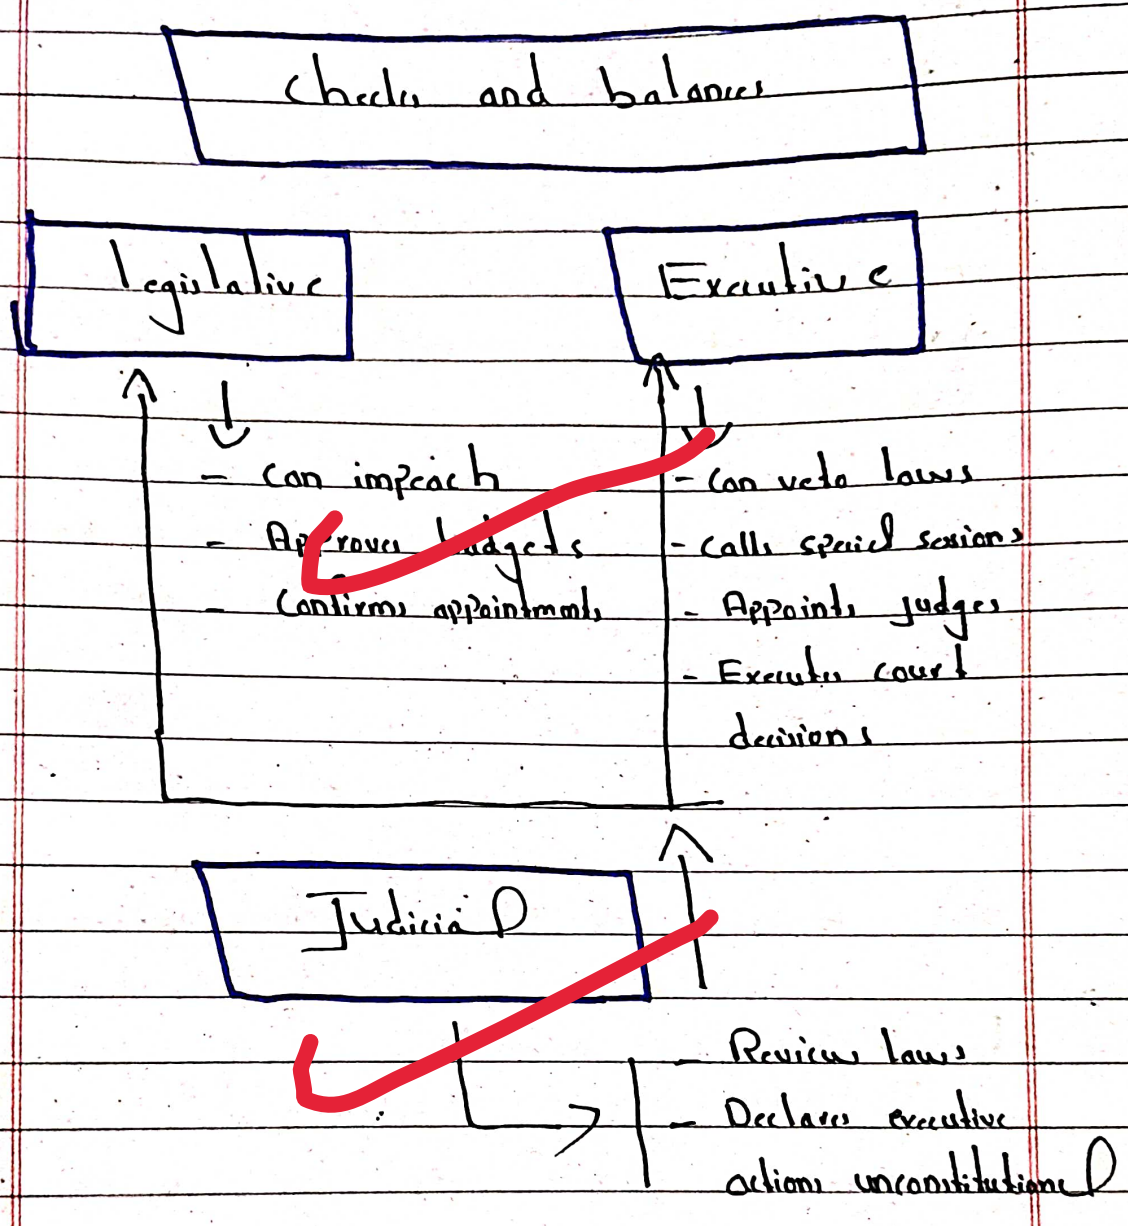 Checks and balances
legislative
Executive
- Can impeach
- Approves budgets
- Confirms appointments
- Can veto laws
- Calls special sessions
- Appoints judges
- Executes court
decisions
Judicial
- Reviews laws
- Declares executive
actions unconstitutional